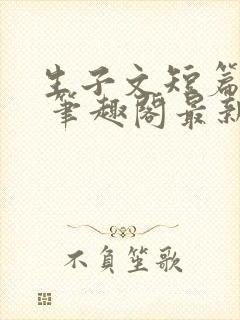 生子文短篇
笔趣阁最新
不負笙歌